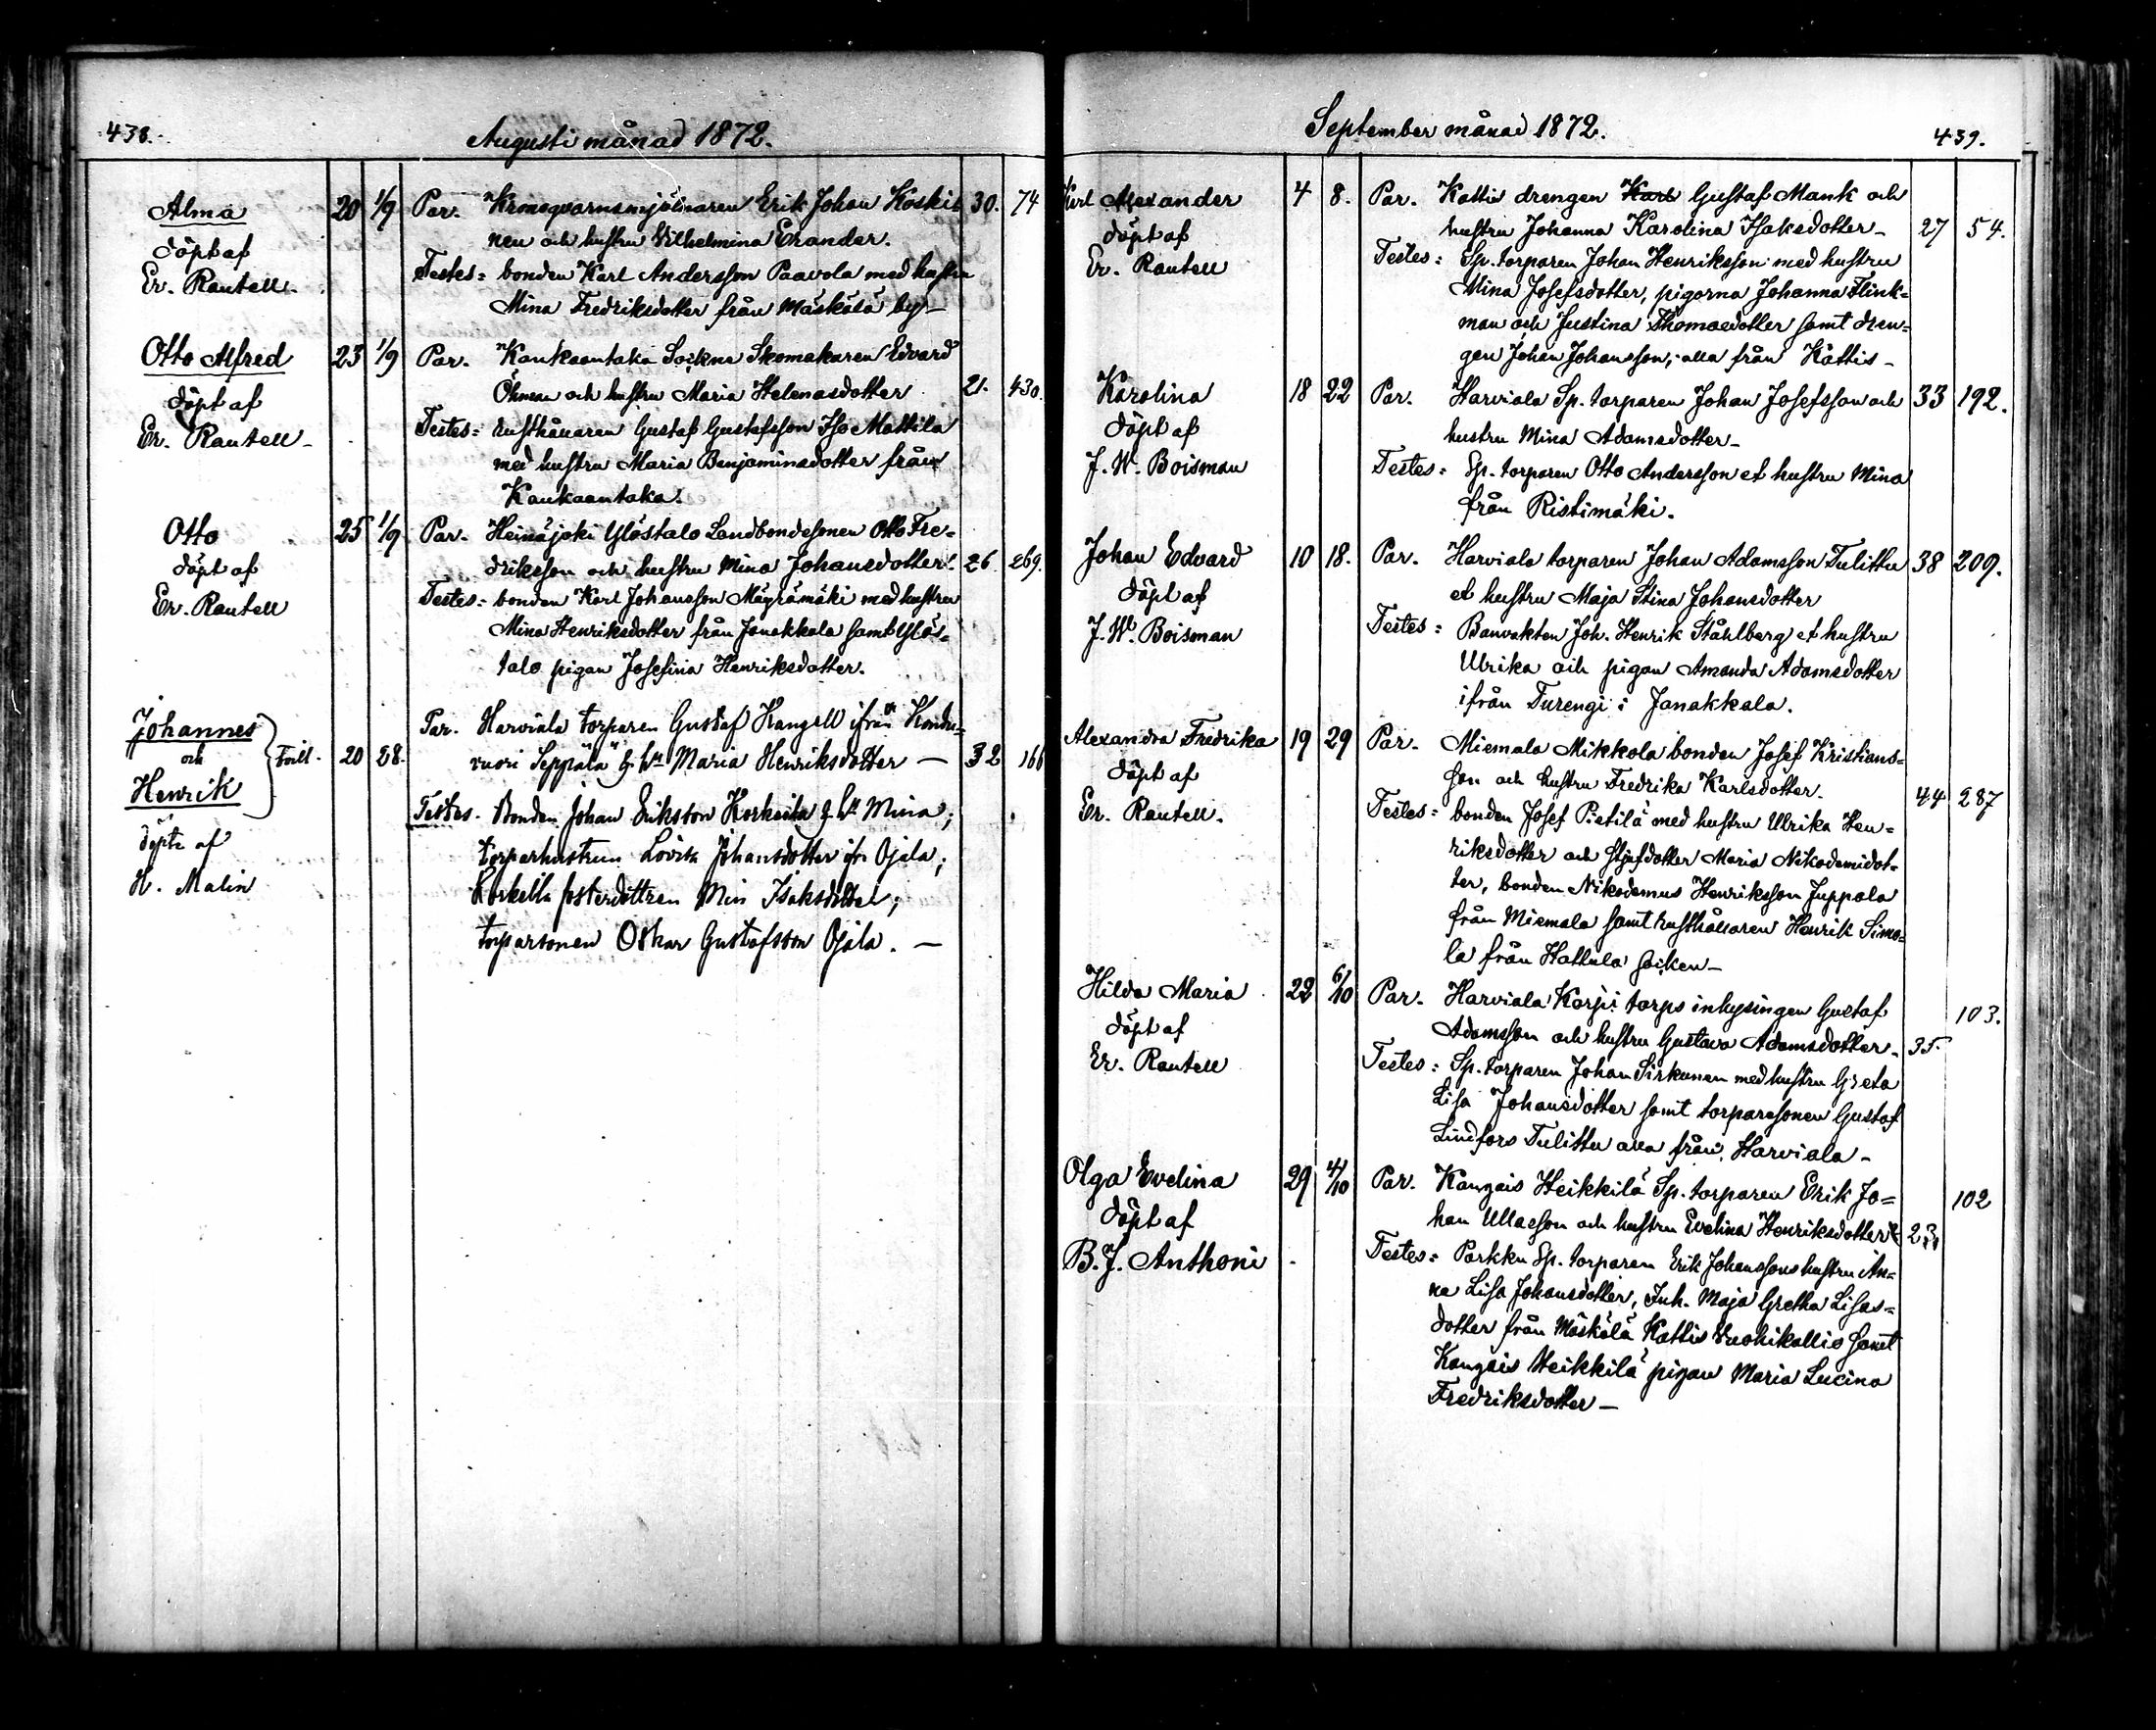 438.
Augusti månad 1872.
Alma 20 1/9 Par. Kronoqvarnsmjölnaren Erik Johan Koski- 30. 74
nen och hustru Vilhelmina Erander.
döpt af
Er. Rautell.
Testes: bonden Karl Andersson Paavola med hustru
Mina Fredriksdotter från Mäskälä by-
Otto Alfred 23 1/9 Par. Kankaantaka Sockne Skomakaren Edvard
Öhman och hustru Maria Helenasdotter 21. 430.
döpt af
Er. Rautell-
Testes: husthållaren Gustaf Gustafsson Iso Mattila
med hustru Maria Benjaminsdotter från
Kankaantaka.
Otto 25 1/9 Par. Heinäjoki Ylöstalo Landbondesonen Otto Fre-
driksson och hustru Mina Johansdotter. 26. 269.
döpt af
Er. Rautell
Testes: bonden Karl Johansson Mäyrämäki med hustru
Mina Henriksdotter från Janakkala samt Ylös-
talo pigan Josefina Henriksdotter.
Johannes
och
Henrik
Tvill. 20 28. Par. Harviala torparen Gustaf Kangell ifrån
vuori Seppälä & h. Maria Henriksdotter — 32 166
döpte af
H. Malin
Testes. Bonden Johan Eriksson Korkeila & h. Mina;
torparhustrun Lovisa Johansdotter ifr. Ojala;
Korkeila fosterdottren Isaksdotter;
torparsonen Oskar Gustafsson Ojala. —
September månad 1872.
439.
Karl Alexander 4 8. Par. Kattis drengen Karl Gustaf Mank och
hustru Johanna Karolina Isaksdotter- 27 54.
döpt af
Er. Rautell
Testes: Sp. torparen Johan Henriksson med hustru
Mina Josefsdotter, pigorna Johanna Flink-
man och Justina Thomasdotter samt dren-
gen Johan Johansson, alla från Kättis-
Karolina 18 22 Par. Harviala Sp. torparen Johan Josefsson och 33 192.
hustru Mina Adamsdotter-
döpt af
J. W. Boisman
Testes: Sp. torparen Otto Andersson et hustru Mina
från Ristimäki.
Johan Edvard 10 18. Par. Harviala torparen Johan Adamsson Tulittu 38 209.
et hustru Maja Stina Johansdotter
döpt af
J. W. Boisman
Testes: Banvakten Joh. Henrik Ståhlberg et hustru
Ulrika och pigan Amanda Adamsdotter
ifrån Turengi i Janakkala.
Alexandra Fredrika 19 29 Par. Miemala Mikkola bonden Josef Kristians-
son och hustru Fredrika Karlsdotter. 44 287
döpt af
Er. Rautell.
Testes: bonden Josef Pietilä med hustru Ulrika Hen-
riksdotter och stjufdotter Maria Nikodemidot-
ter, bonden Nikodemus Henriksson Juppala
från Miemala samt husthållaren Henrik Simo-
la från Hattula socken-
Hilda Maria 22 6/10 Par. Harviala Korpi torps inhysingen Gustaf 103.
Adamsson och hustru Gustava Adamsdotter- 35.
döpt af
Er. Rautell
Testes: Sp. torparen Johan Sirkunen med hustru Greta
Lisa Johansdotter samt torparesonen Gustaf
Lindfors Tulittu alla från Harviala-
Olga Evelina 29 4/10 Par. Kangais Heikkilä Sp. torparen Erik Jo- 102
han Ullasson och hustru Evelina Henriksdotter 23
döpt af
B. J. Anthoni
Testes: Parkku Sp. torparen Erik Johanssons hustru An-
na Lisa Johansdotter, Inh. Maja Gretha Lisas-
dotter från Mäskälä Kattis Vuohikallio samt
Kangais Heikkilä pigan Maria Lucina
Fredriksdotter—